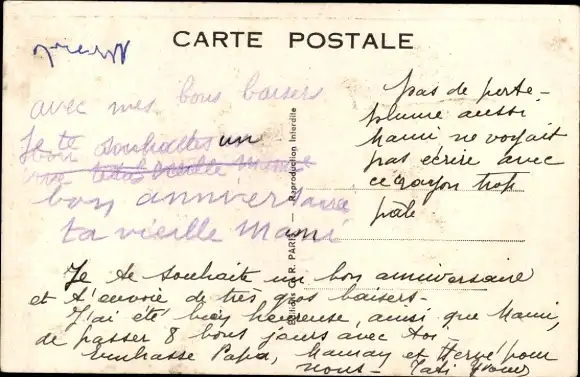 CARTE POSTALE
avec mes bons baisers
Je te souhaites un
bon anniversaire
ta vieille Mami
pas de porte-
plume aussi
Mami ne voyait
pas écrire avec
ce crayon trop
pâle
Editions G.R. PARIS — Reproduction Interdite
Je te souhaite un bon anniversaire
et t'envoie de très gros baisers-
J'ai été bien heureuse, ainsi que Mami,
de passer 8 bons jours avec toi-
Embrasse Papa, Maman et Hervé pour
nous- Tati Yvonne